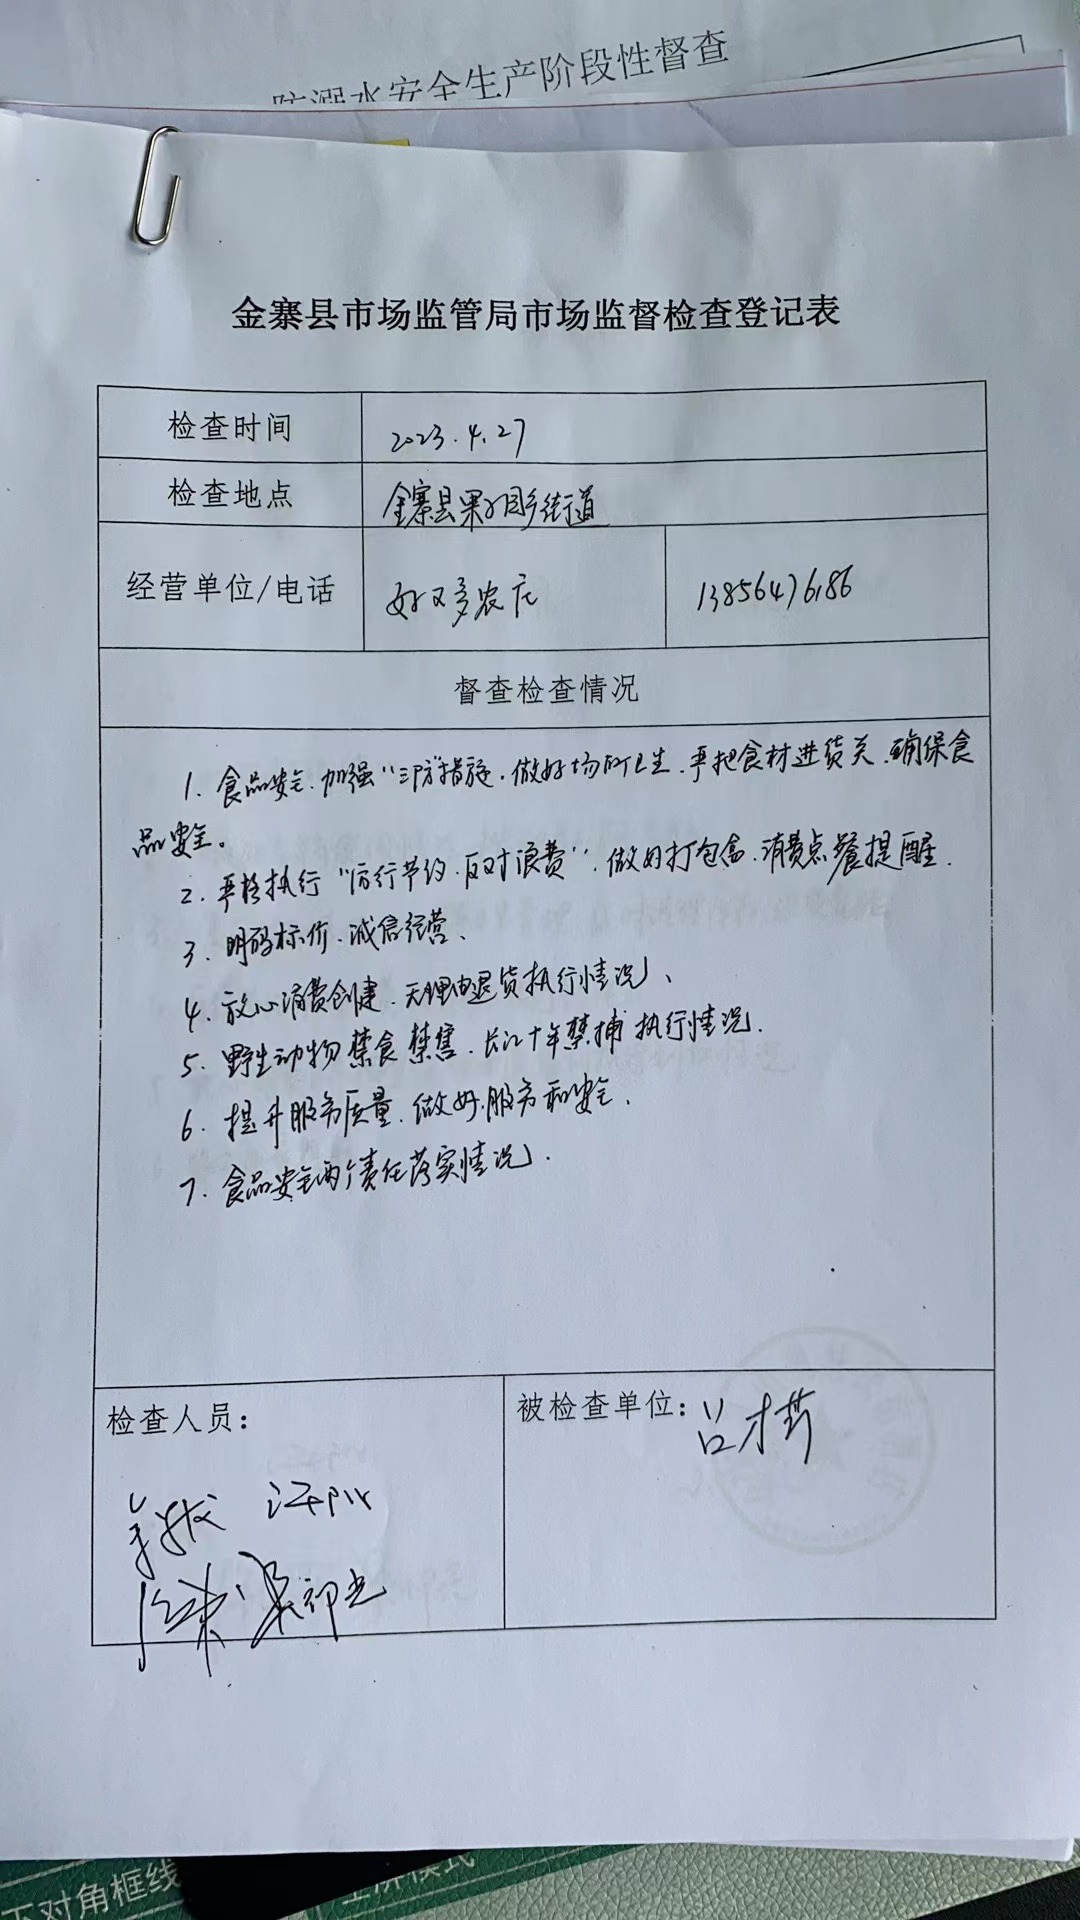 防溺水安全生产阶段性督查
金寨县市场监管局市场监督检查登记表
检查时间
2023.4.27
检查地点
金寨县果子园乡街道
经营单位/电话
好又多农庄
13856476186
督查检查情况
1. 食品安全、加强“三防”措施、做好场所卫生、严把食材进货关、确保食
品安全。
2. 严格执行“厉行节约、反对浪费”、做好打包盒、消费点餐提醒.
3. 明码标价、诚信经营、
4. 放心消费创建、无理由退货执行情况、
5. 野生动物禁食禁售、长江十年禁捕执行情况.
6. 提升服务质量、做好服务和安全、
7. 食品安全两个责任落实情况.
检查人员:
被检查单位:
下对角框线